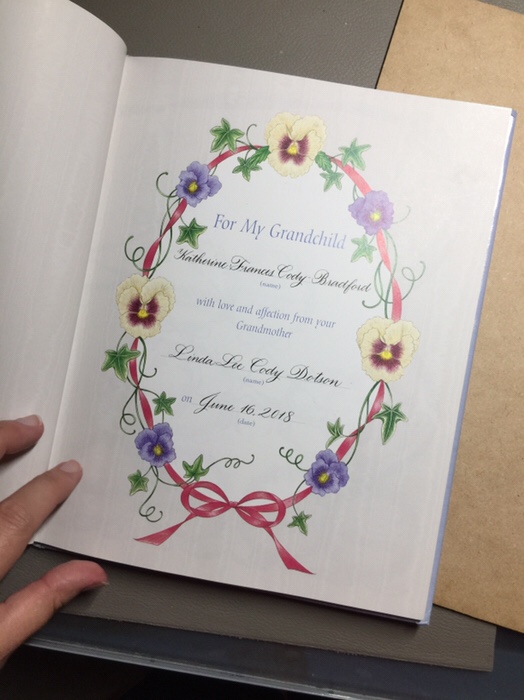 For My Grandchild
Katherine Frances Cody Bradford
(name)
with love and affection from your
Grandmother
Linda Lee Cody Dotson
(name)
on June 16, 2018
(date)